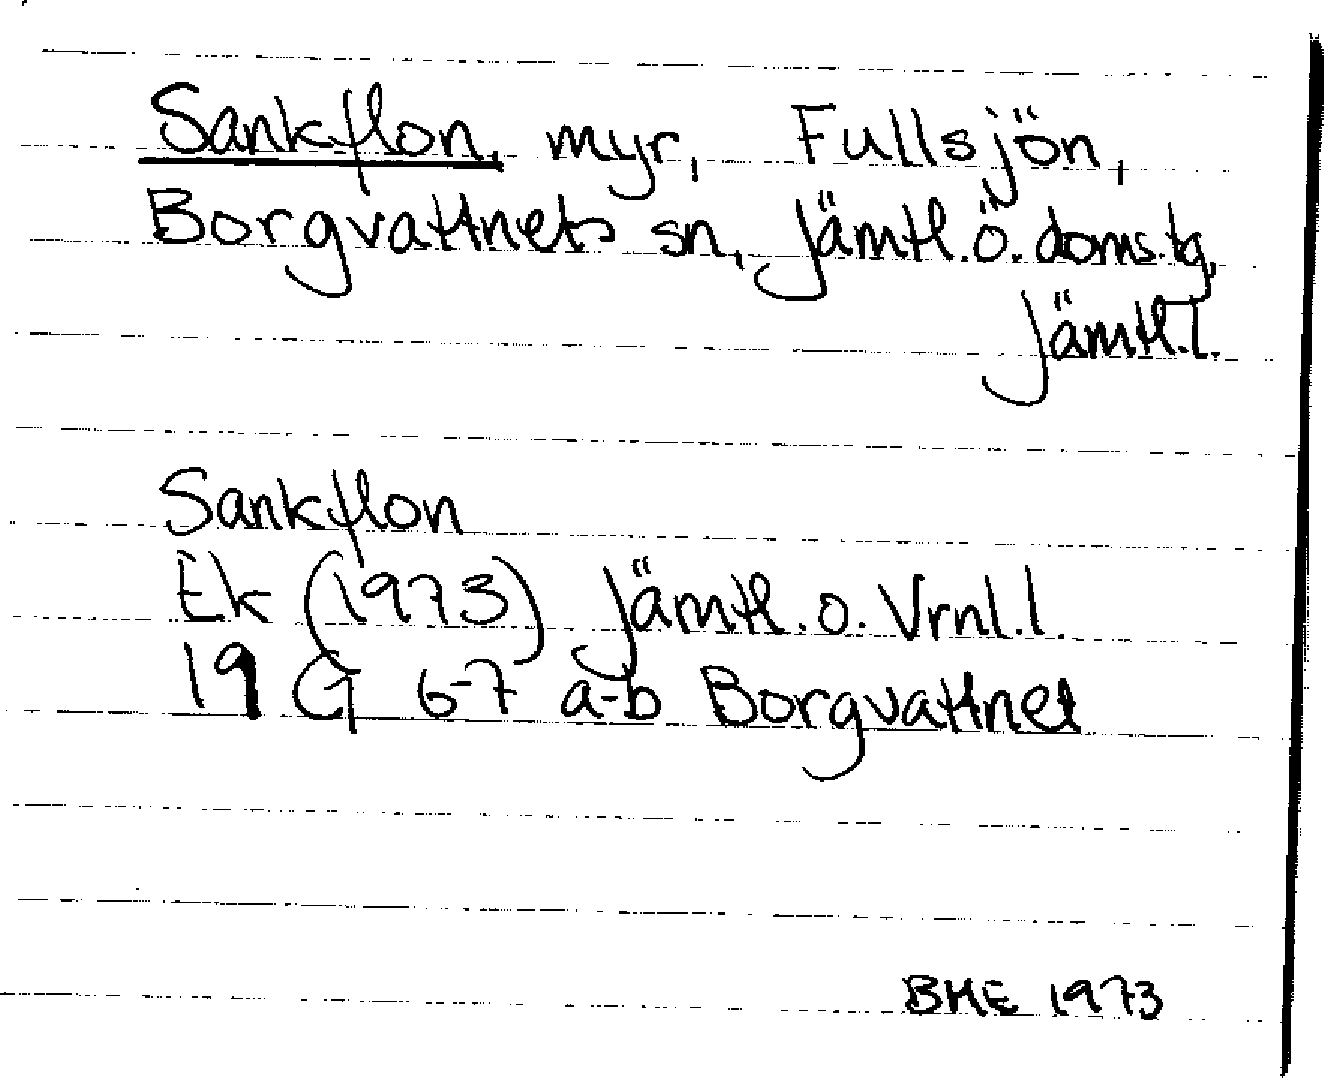 Sankflon, myr, Fullsjön,
Borgvattnets sn, Jämtl.ö. doms.tg,
Jämtl.l.
Sankflon
Ek (1973) Jämtl.o. Vrnl.l.
19 G 6-7 a-b Borgvattnet
BME 1973